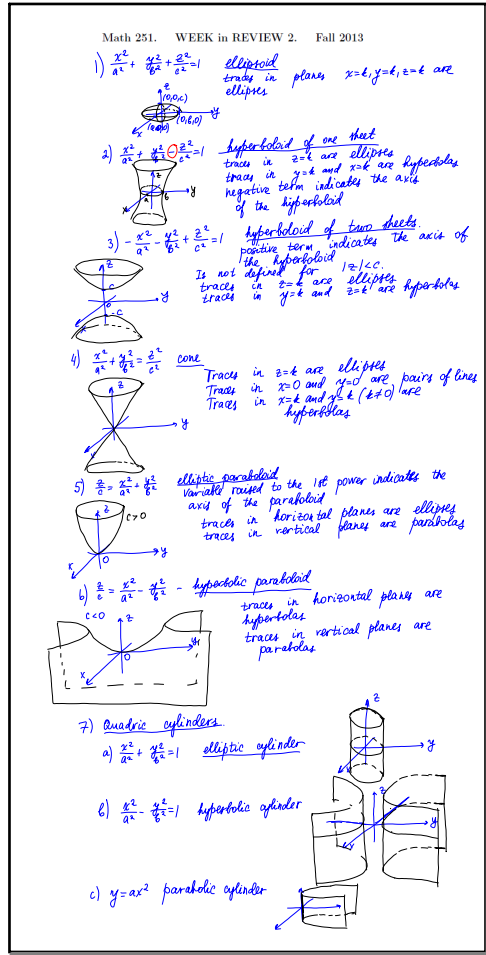 Math 251. WEEK in REVIEW 2. Fall 2013
1) x²/a² + y²/b² + z²/c² = 1 ellipsoid
traces in planes x=k, y=k, z=k are
ellipses
z
(0,0,c)
y
(a,0,0) (0,b,0)
x
2) x²/a² + y²/b² - z²/c² = 1 hyperboloid of one sheet
traces in z=k are ellipses
traces in y=k and x=k are hyperbolas
negative term indicates the axis
of the hyperboloid
z
a b y
x
3) - x²/a² - y²/b² + z²/c² = 1 hyperboloid of two sheets.
positive term indicates the axis of
the hyperboloid
Is not defined for |z|<c.
traces in z=k are ellipses
traces in y=k and z=k are hyperbolas
z
c
0 y
-c
x
4) x²/a² + y²/b² = z²/c² cone
Traces in z=k are ellipses
Traces in x=0 and y=0 are pairs of lines
Traces in x=k and y=k (k≠0) are
hyperbolas
z
y
x
5) z/c = x²/a² + y²/b² elliptic paraboloid
variable raised to the 1st power indicates the
axis of the paraboloid
traces in horizontal planes are ellipses
traces in vertical planes are parabolas
z
c>0
0 y
x
6) z/c = x²/a² - y²/b² - hyperbolic paraboloid
traces in horizontal planes are
hyperbolas
traces in vertical planes are
parabolas
c<0 z
y
0
x
7) Quadric cylinders.
a) x²/a² + y²/b² = 1 elliptic cylinder
z
y
x
b) x²/a² - y²/b² = 1 hyperbolic cylinder
z
y
x
c) y=ax² parabolic cylinder